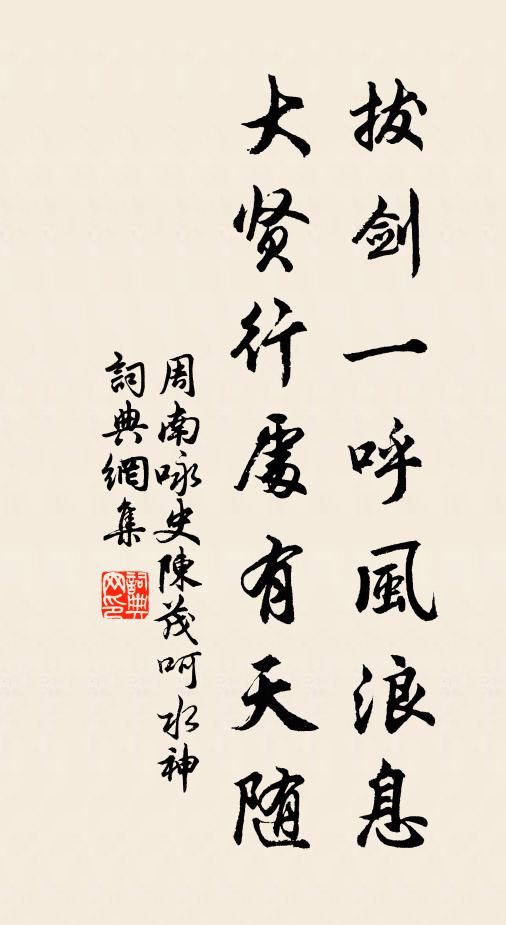 拔剑一呼風浪息
大贤行處有天随
周南咏史陳茂呵水神
詞典網集
詞典網印